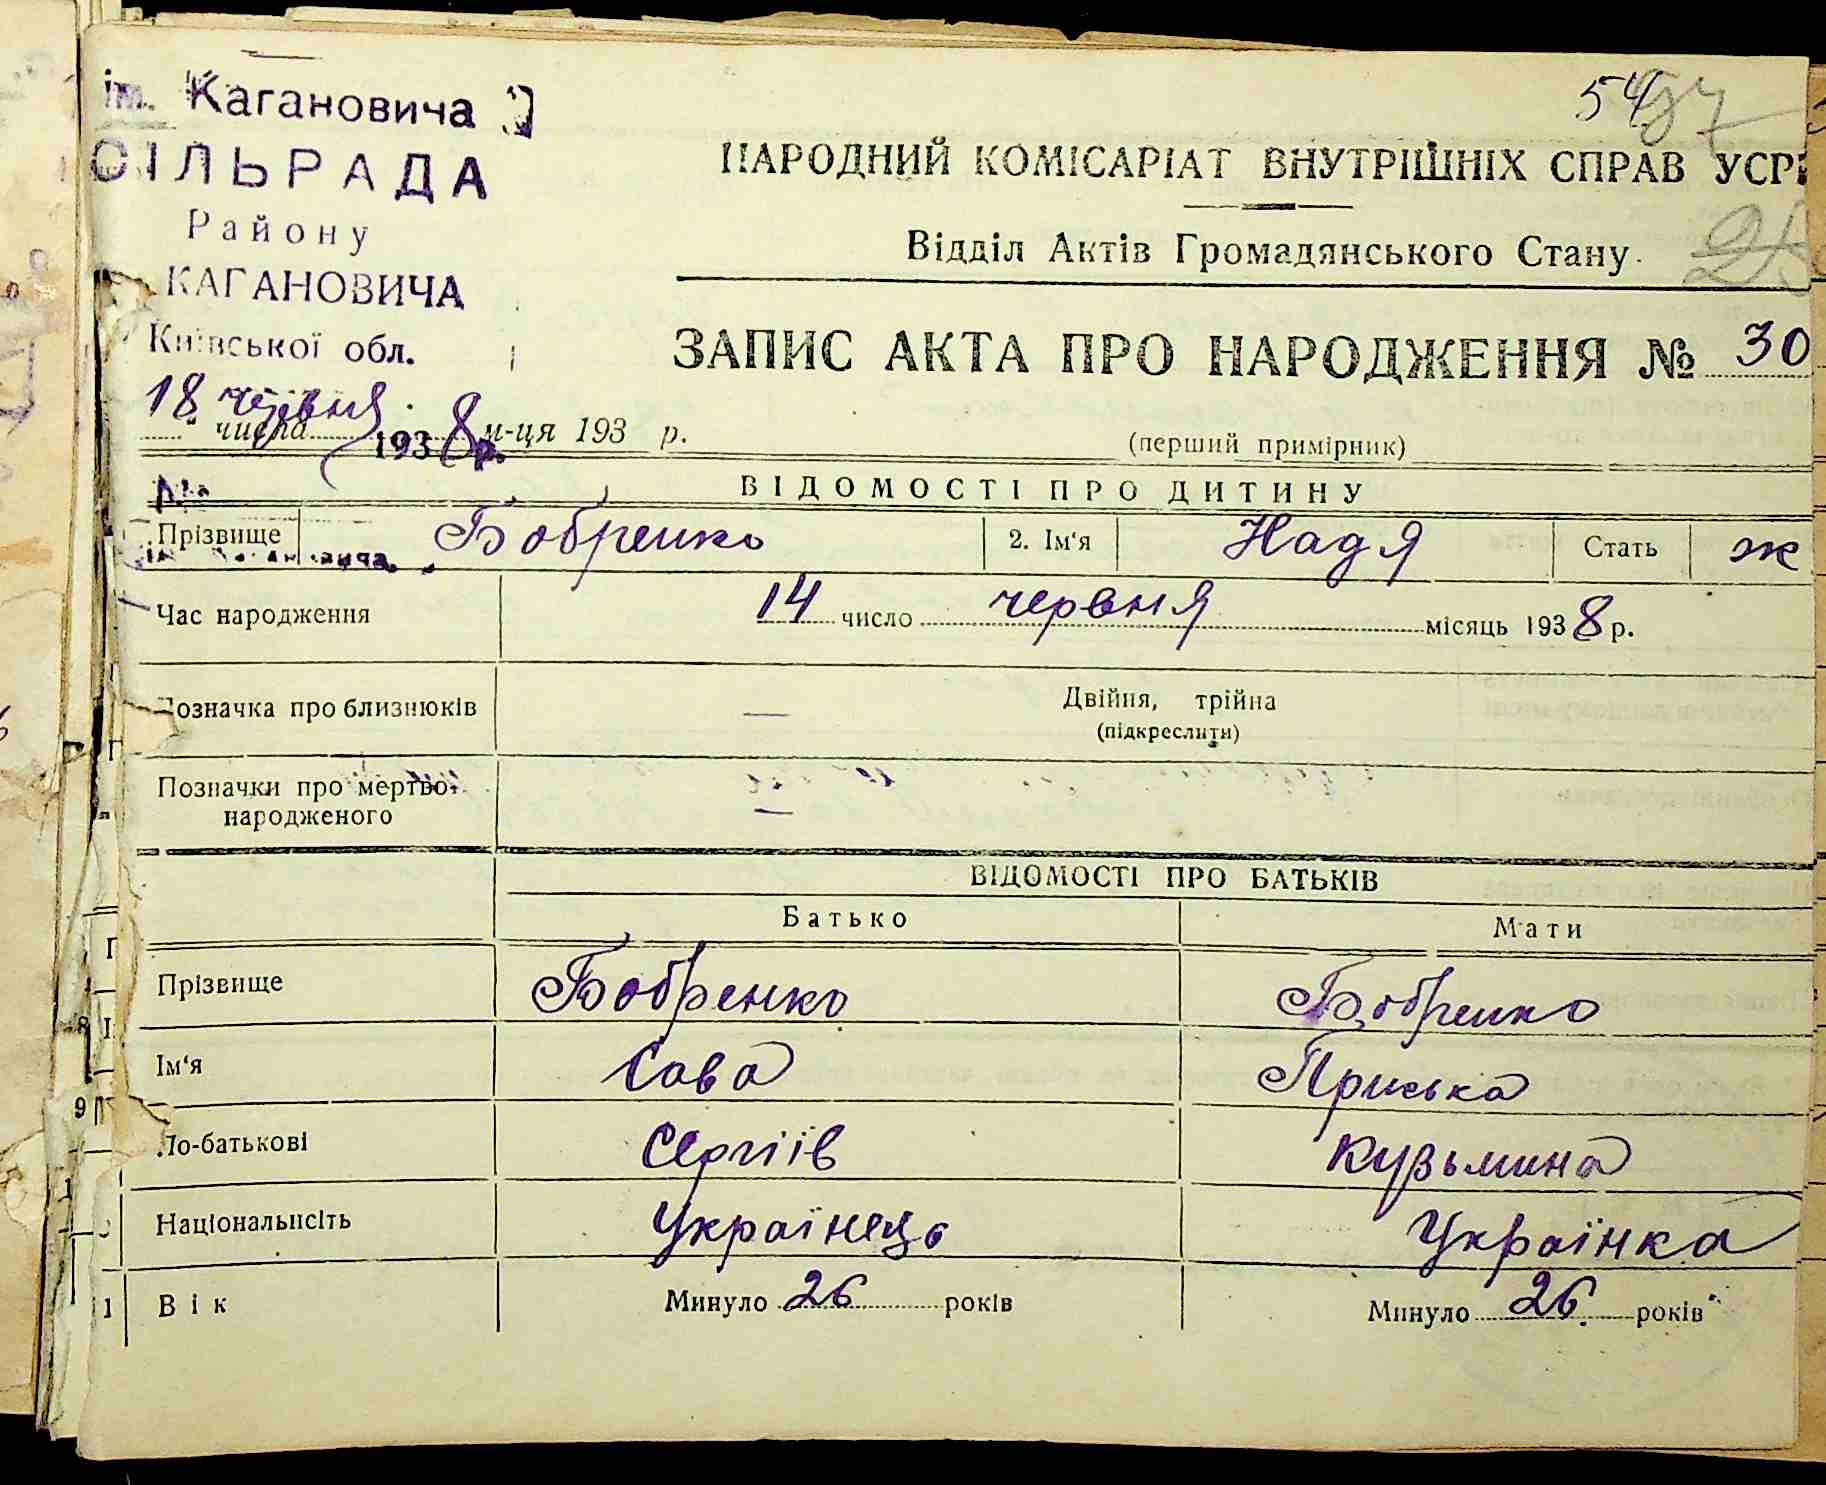 ім. Кагановича
СІЛЬРАДА
Району
КАГАНОВИЧА
Київської обл.
18 червня
числа 1938 р. м-ця 193 р.
54
НАРОДНИЙ КОМІСАРІАТ ВНУТРІШНІХ СПРАВ УСРР
Відділ Актів Громадянського Стану
ЗАПИС АКТА ПРО НАРОДЖЕННЯ № 30
(перший примірник)
ВІДОМОСТІ ПРО ДИТИНУ
Прізвище Бобренко 2. Ім'я Надя Стать ж
Час народження 14 число червня місяць 1938 р.
Позначка про близнюків — Двійня, трійна
(підкреслити)
Позначки про мертво-
народженого —
ВІДОМОСТІ ПРО БАТЬКІВ
Батько Мати
Прізвище Бобренко Бобренко
Ім'я Сава Приська
9
По-батькові Сергіїв Кузьмина
Національність Українець Українка
11 Вік Минуло 26 років Минуло 26 років